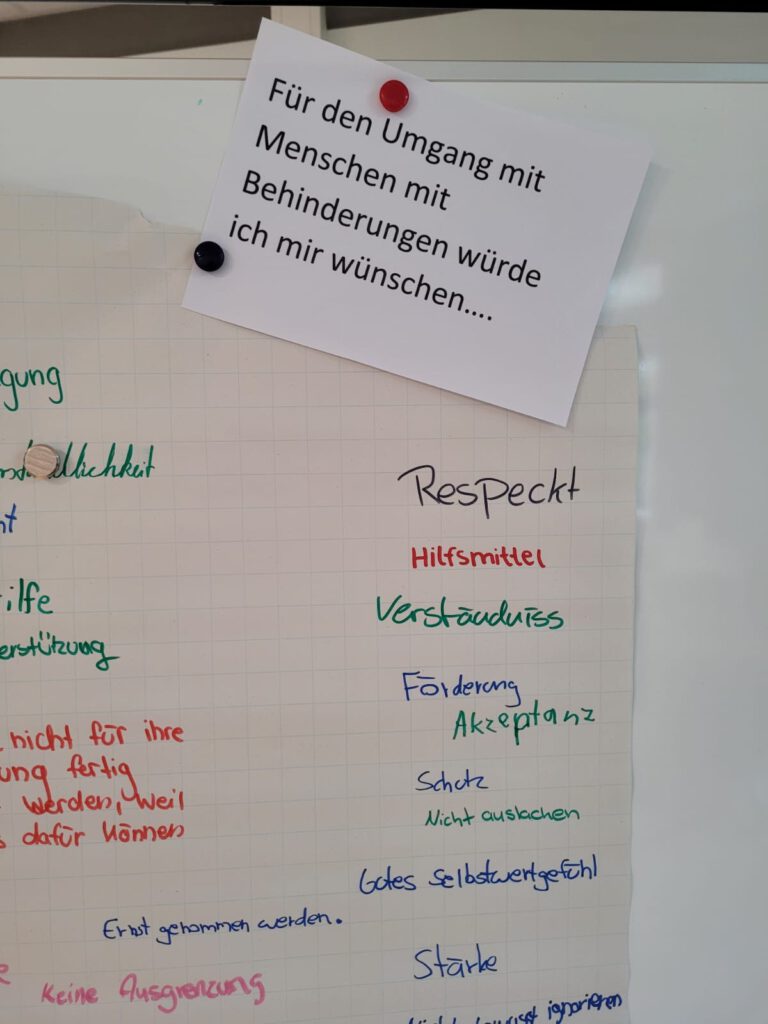 Für den Umgang mit
Menschen mit
Behinderungen würde
ich mir wünschen....
gung
lichkeit
Respeckt
nt
Hilfsmittel
ilfe
Verständniss
erstützung
Förderung
Akzeptanz
nicht für ihre
ung fertig
werden, weil
s dafür können
Schutz
Nicht auslachen
Gutes Selbstwertgefühl
Ernst genommen werden.
Stärke
e
Keine Ausgrenzung
ignorieren